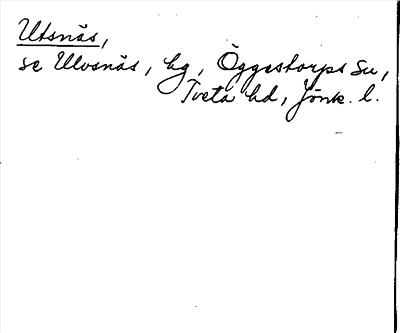 Utsnäs,
se Ulvsnäs, hg, Öggestorps sn,
Tveta hd, Jönk. l.